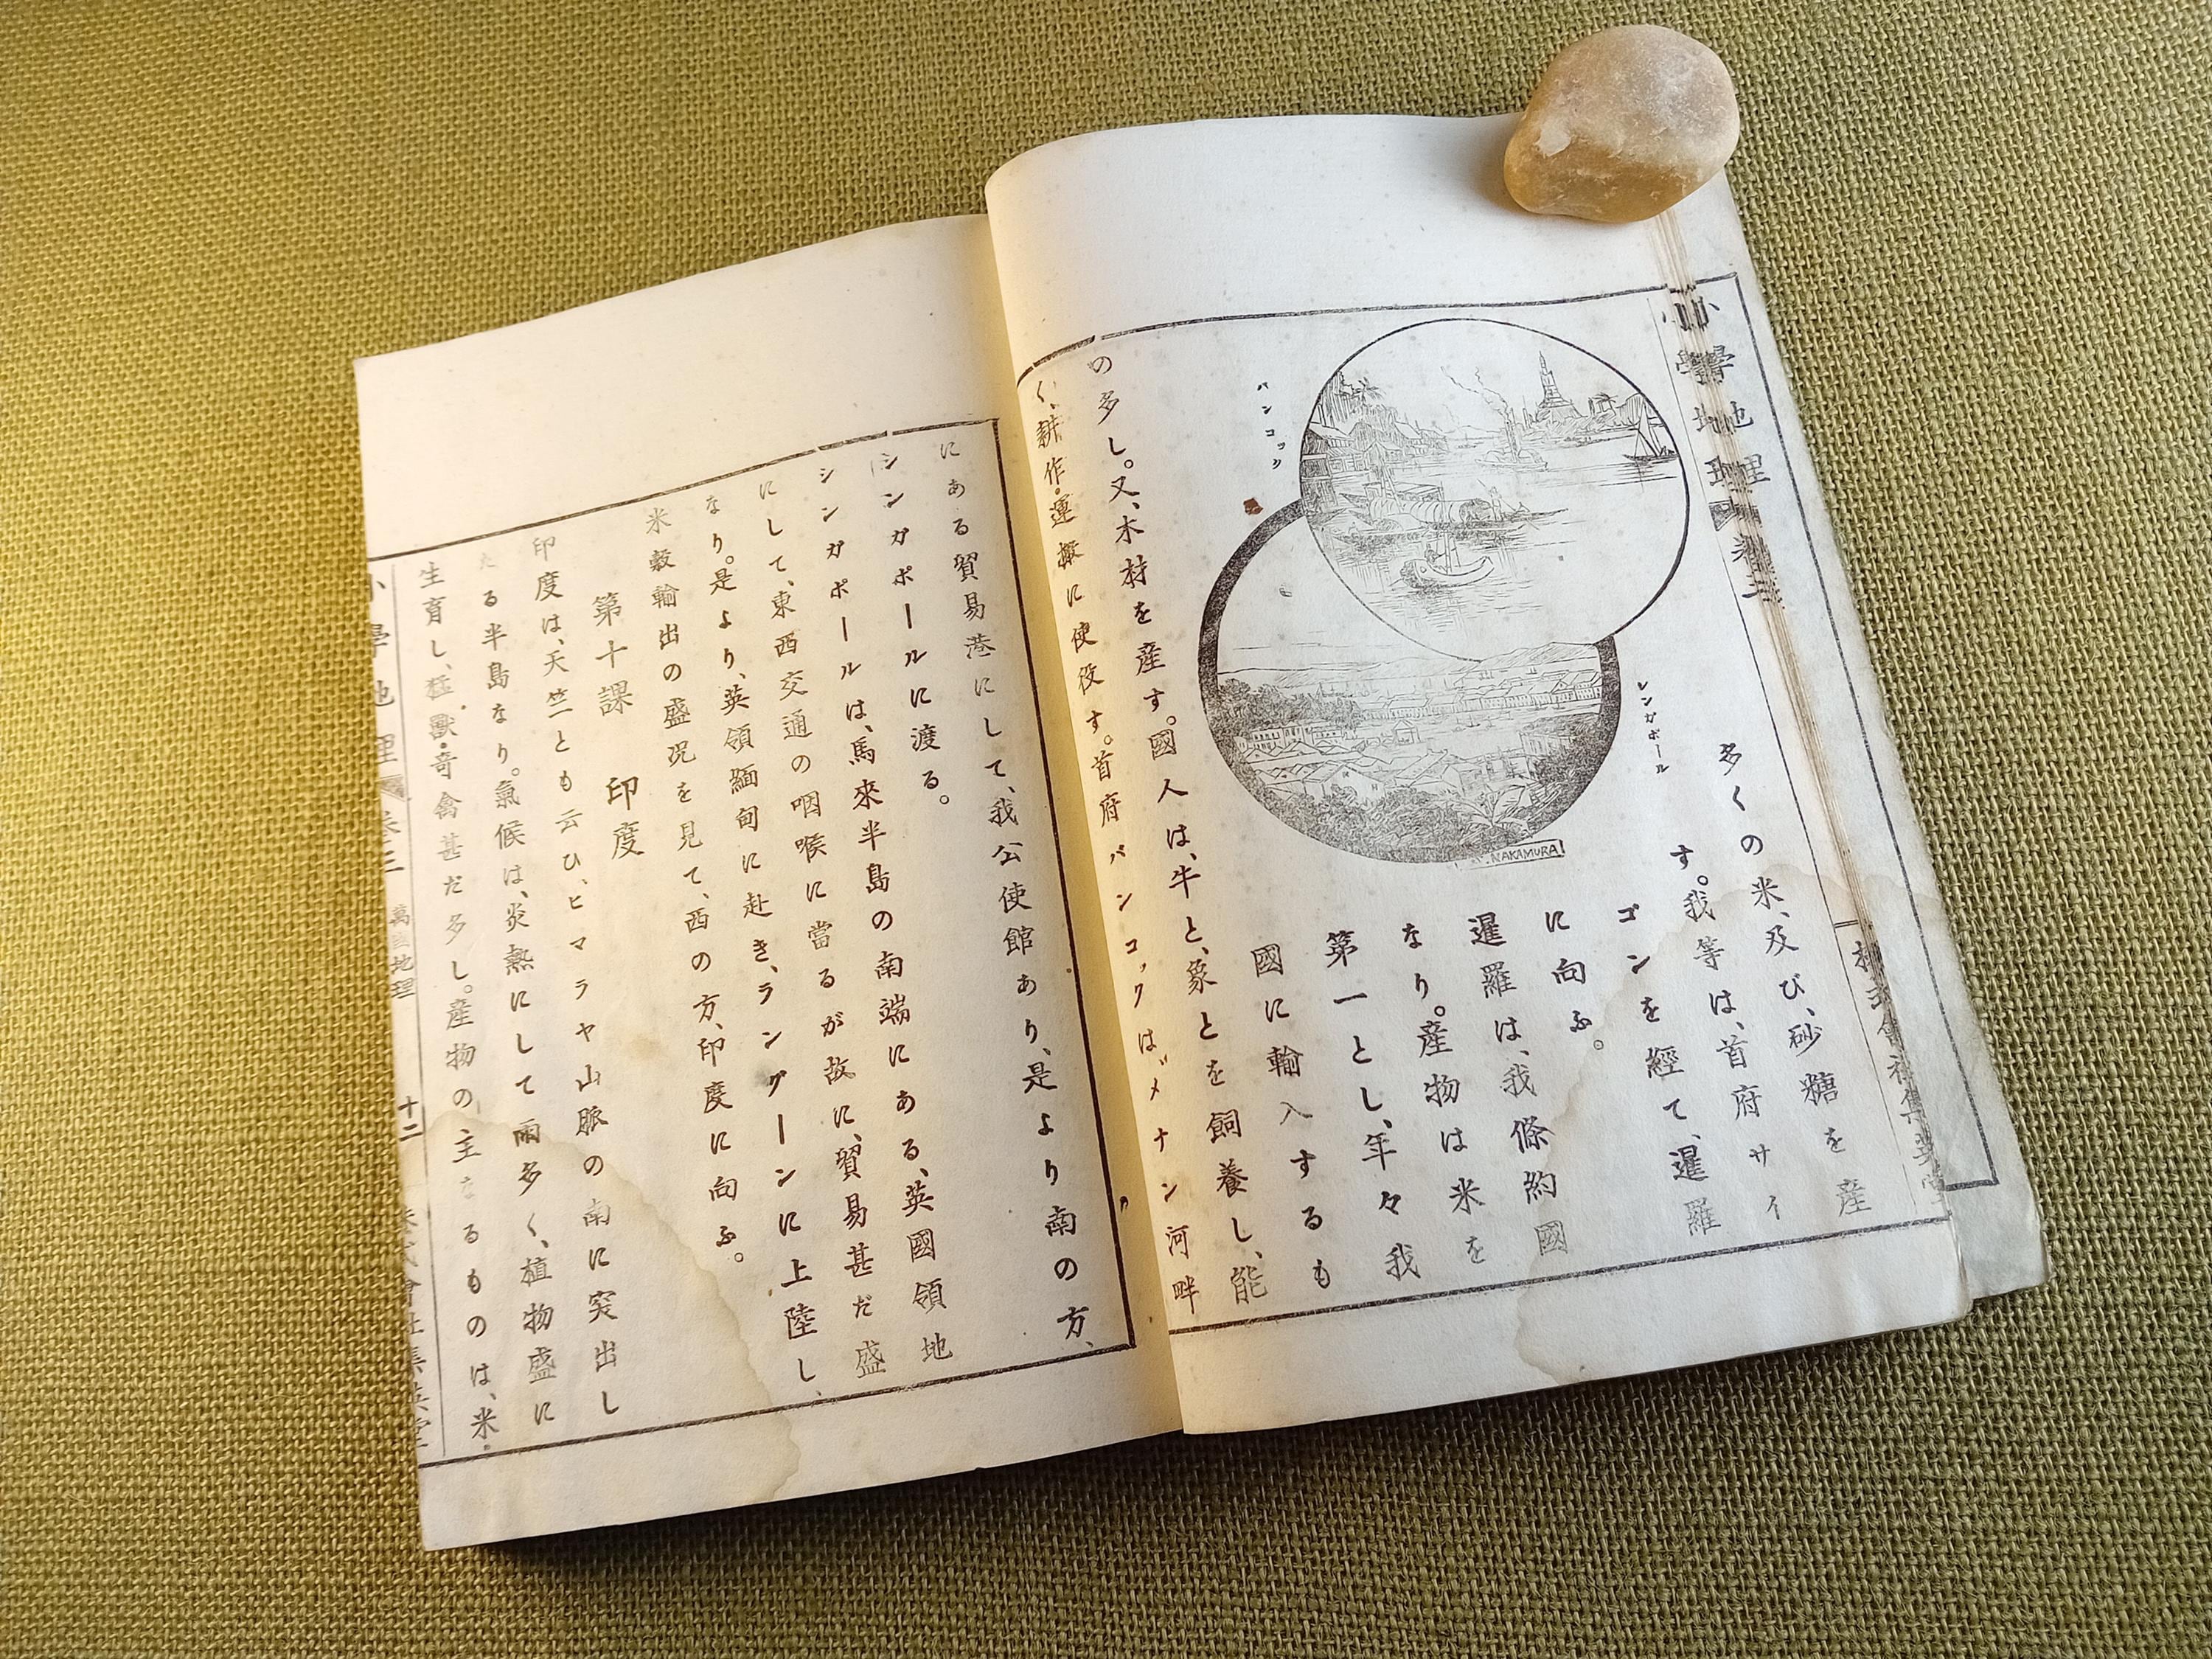 小學地理卷三
多くの米、及び、砂糖を産
す。我等は、首府サイ
ゴンを經て、暹羅
に向ふ。
暹羅は、我條約國
なり。産物は米を
第一とし、年々我
國に輸入するも
の多し。又、木材を産す。國人は、牛と、象とを飼養し、能
く、耕作・運搬に使役す。首府バンコックは、メナン河畔
バンコック
シンガポール
NAKAMURA
にある貿易港にして、我公使館あり、是より南の方、
シンガポールに渡る。
シンガポールは、馬來半島の南端にある、英國領地
にして、東西交通の咽喉に當るが故に、貿易甚だ盛
なり。是より、英領緬甸に赴き、ラングーンに上陸し、
米穀輸出の盛况を見て、西の方、印度に向ふ。
第十課 印度
印度は、天竺とも云ひ、ヒマラヤ山脈の南に突出し
たる半島なり。氣候は、炎熱にして雨多く、植物盛に
生育し、猛獸・奇禽甚だ多し。産物の主なるものは、米・
小學地理 卷三 萬國地理 十二 株式會社集英堂